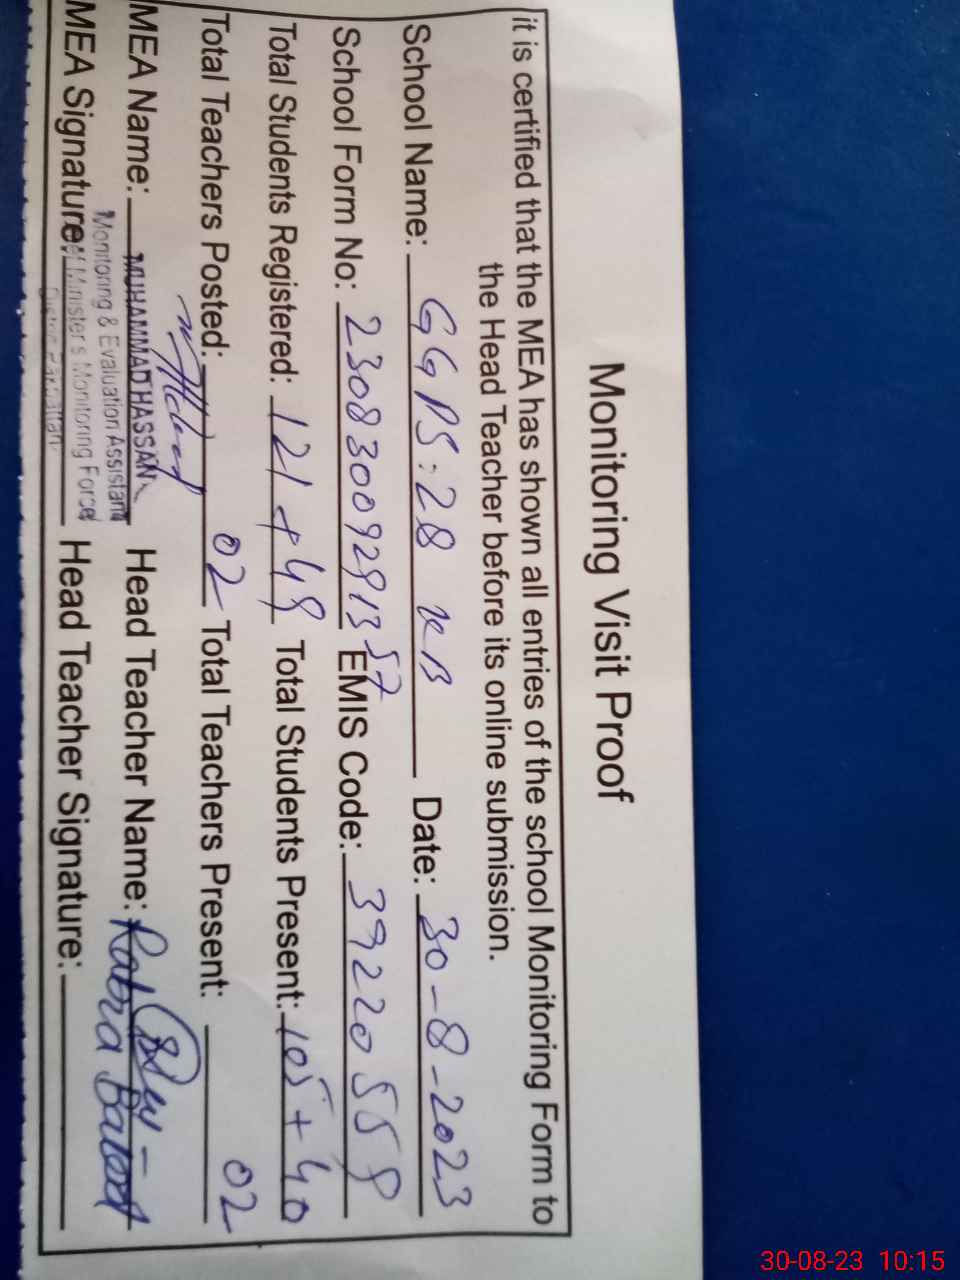 Monitoring Visit Proof
it is certified that the MEA has shown all entries of the school Monitoring Form to
the Head Teacher before its online submission.
School Name: GGPS: 28 KB Date: 30-8-2023
School Form No: 230830092913 57 EMIS Code: 39220558
Total Students Registered: 121 + 48 Total Students Present: 105 + 40
Total Teachers Posted: 02 Total Teachers Present: 02
MEA Name: MUHAMMAD HASSAN Head Teacher Name: Rabia
Monitoring & Evaluation Assistant
MEA Signature: Head Teacher Signature:
Minister's Monitoring Force
30-08-23 10:15